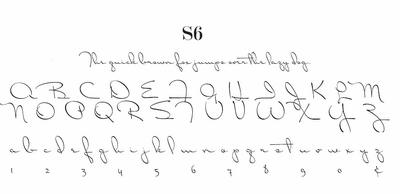 S6
The quick brown fox jumps over the lazy dog.
A B C D E F G H I J K L M
N O P Q R S T U V W X Y Z
a b c d e f g h i j k l m n o p q r s t u v w x y z
1 2 3 4 5 6 7 8 9 0